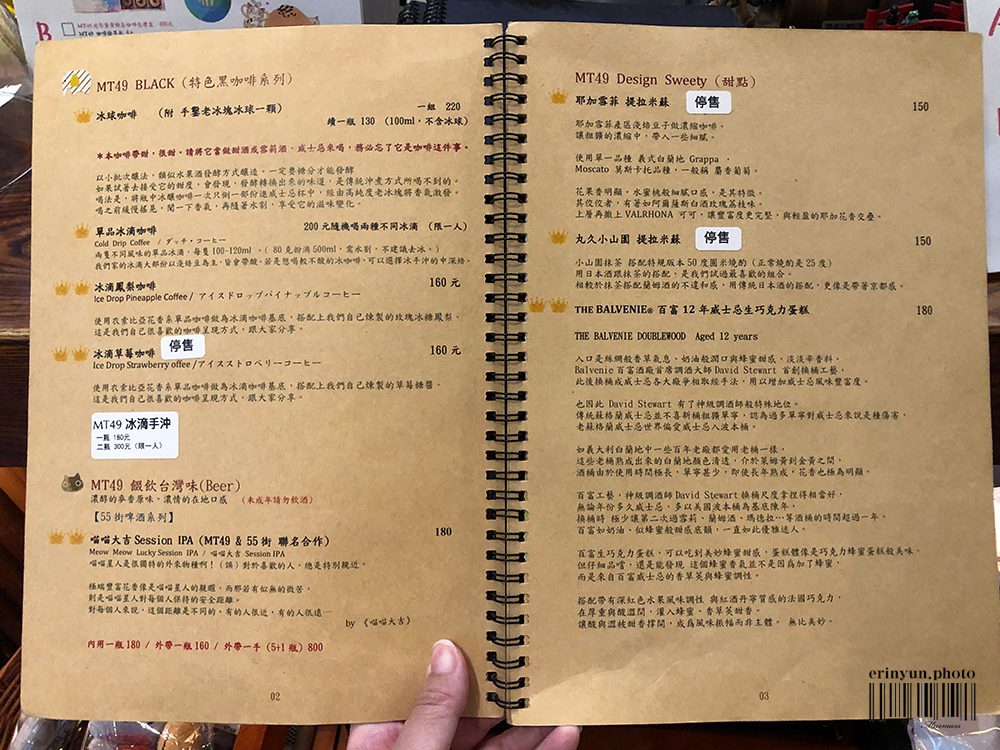 B
MT49 BLACK (特色黑咖啡系列)
冰球咖啡 (附 手鑿老冰塊冰球一顆) 一組 220
續一瓶 130 (100ml,不含冰球)
*本咖啡帶甜,很甜。請將它當做甜酒或雪莉酒、威士忌來喝,務必忘了它是咖啡這件事。
以小批次釀法,類似水果酒發酵方式釀造。一定要糖分才能發酵
如果試著去接受它的甜度,會發現,發酵轉換出來的味道,是傳統沖煮方式所喝不到的。
喝法是,將瓶中冰釀咖啡一次只倒一部份進威士忌杯中,經由高純度老冰塊將香氣激發。
喝之前緩慢搖晃,聞一下香氣,再隨著水割,享受它的滋味變化。
單品冰滴咖啡 200 元隨機喝兩種不同冰滴 (限一人)
Cold Drip Coffee / ダッチ・コーヒー
兩隻不同風味的單品冰滴,每隻100-120ml 。( 80 克粉滴 500ml,需水割,不建議去冰。)
我們家的冰滴大部份以淺焙豆為主,皆會帶酸。若是想喝較不酸的冰咖啡,可以選擇冰手沖的中深焙。
冰滴鳳梨咖啡 160 元
Ice Drop Pineapple Coffee / アイスドロップパイナップルコーヒー
使用衣索比亞花香系單品咖啡做為冰滴咖啡基底,搭配上我們自己煉製的玫瑰冰糖鳳梨。
這是我們自己很喜歡的咖啡呈現方式,跟大家分享。
冰滴草莓咖啡 停售 160 元
Ice Drop Strawberry offee / アイスストロベリーコーヒー
使用衣索比亞花香系單品咖啡做為冰滴咖啡基底,搭配上我們自己煉製的草莓糖醬。
這是我們自己很喜歡的咖啡呈現方式,跟大家分享。
MT49 冰滴手沖
一瓶 180元
二瓶 300元 (限一人)
MT49 餟飲台灣味(Beer)
濃醇的麥香原味,濃情的在地口感 (未成年請勿飲酒)
【55 街啤酒系列】
喵喵大吉 Session IPA (MT49 & 55 街 聯名合作) 180
Meow Meow Lucky Session IPA / 喵喵大吉 Session IPA
喵喵星人是很獨特的外來物種啊!(誤)對於喜歡的人,總是特別親近。
極端豐富花香像是喵喵星人的親暱,而那若有似無的微苦,
則是喵喵星人對每個人保持的安全距離。
對每個人來說,這個距離是不同的。有的人很近,有的人很遠⋯
by 《喵喵大吉》
內用一瓶 180 / 外帶一瓶 160 / 外帶一手 (5+1 瓶) 800
02
MT49 Design Sweety (甜點)
耶加雪菲 提拉米蘇 停售 150
耶加雪菲產區淺焙豆子做濃縮咖啡。
讓粗獷的濃縮中,帶入一些細膩。
使用單一品種 義式白蘭地 Grappa ,
Moscato 莫斯卡托品種,一般稱 麝香葡萄。
花果香明顯,水蜜桃般細膩口感,是其特徵。
其佼佼者,有著如阿爾薩斯白酒玫瑰荔枝味。
上層再撒上 VALRHONA 可可,讓豐富度更完整,與輕盈的耶加花香交疊。
丸久小山園 提拉米蘇 停售 150
小山園抹茶 搭配特規版本 50 度團米燒酌 (正常燒酌是 25 度)
用日本酒跟抹茶的搭配,是我們試過最喜歡的組合。
相較於抹茶搭配蘭姆酒的不違和感,用傳統日本酒的搭配,更像是帶著京都感。
THE BALVENIE® 百富 12 年威士忌生巧克力蛋糕 180
THE BALVENIE DOUBLEWOOD Aged 12 years
入口是絲綢般香草氣息、奶油般潤口與蜂蜜甜感,淡淡辛香料。
Balvenie 百富酒廠首席調酒大師 David Stewart 首創換桶工藝,
此後換桶成威士忌各大廠爭相取經手法,用以增加威士忌風味豐富度。
也因此 David Stewart 有了神級調酒師般特殊地位。
傳統蘇格蘭威士忌並不喜新桶粗獷單寧,認為過多單寧對威士忌來說是種傷害,
老蘇格蘭威士忌世界偏愛威士忌入波本桶。
如義大利白蘭地中一些百年老廠都愛用老桶一樣,
這些老桶熟成出來的白蘭地顏色清透,介於萊姆黃到金黃之間,
酒桶由於使用時間極長,單寧甚少,即使長年熟成,花香也極為明顯。
百富工藝,神級調酒師 David Stewart 換桶尺度拿捏得相當好,
無論年份多久威士忌,多以美國波本桶為基底陳年,
換桶時 極少讓第二次過雪莉、蘭姆酒、瑪德拉…等酒桶的時間超過一年。
百富如奶油、似蜂蜜般甜感底韻,一直如此優雅迷人。
百富生巧克力蛋糕,可以吃到美妙蜂蜜甜感,蛋糕體像是巧克力蜂蜜蛋糕般美味。
但仔細品嚐,還是能發現 這個蜂蜜香氣並不是因為加了蜂蜜,
而是來自百富威士忌的香草莢與蜂蜜調性。
搭配帶有深紅色水果風味調性 與紅酒丹寧質感的法國巧克力,
在厚重與酸澀間,灌入蜂蜜、香草莢甜香。
讓酸與澀被甜香撐開,成為風味振幅而非主體。 無比美妙。
03
erinyun.photo